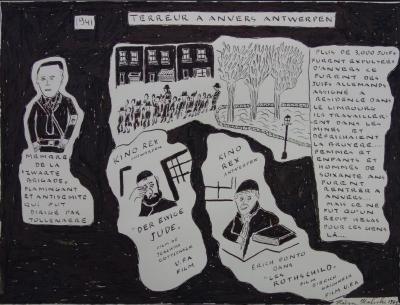 1941
TERREUR A ANVERS ANTWERPEN
PLUS DE 3.000 JUIFS
FURENT EXPULSES
D'ANVERS CE
FURENT DES
JUIFS ALLEMANDS
ASSIGNE A
RESIDENCE DANS
LE LIMBOURG
ILS TRAVAILLER-
ENT DANS LES
MINES ET
DEFRICHAIENT
LA BRUYERE.
FEMMES ET
ENFANTS ET
HOMMES DE
SOIXANTE ANS
PURENT
RENTRER A
ANVERS...
MAIS CE NE
FUT QU'UN
REPIT HELAS
POUR LES SIENS
LA...
MEMBRE
DE LA
"ZWARTE
BRIGADE,
FLAMINGANT
ET ANTISEMITE
QUI FUT
DIRIGE PAR
TOLLENAERE
KINO REX
ANTWERPEN
"DER EWIGE
JUDE,
FILM DE
UFA
FILM
KINO
REX
ANTWERPEN
ERICH PONTO
DANS
"LES
ROTHSCHILD,
FILM
FILM UFA